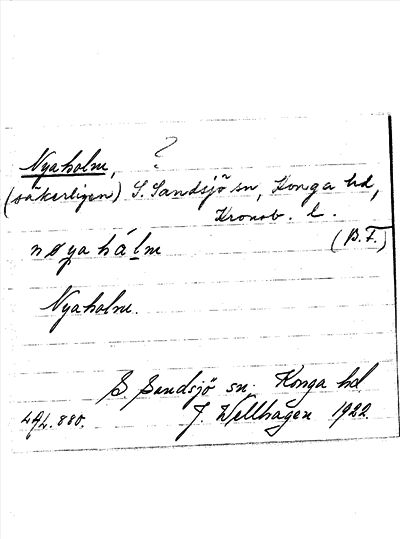 Nyaholm, ?
(säkerligen) S. Sandsjö sn, Konga hd,
Kronob. l.
nøyahálm (B.F.)
Nyaholm.
S. Sandsjö sn. Konga hd.
J. Wellhagen 1922.